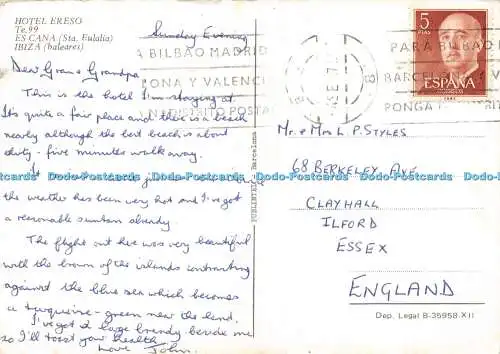 HOTEL ERESO
Te.99
ES CANA (Sta. Eulalia)
IBIZA (baleares)
Sunday Evening
Dear Gran & Grandpa,
This is the hotel I'm staying at.
Its quite a fair place and this is a beach
nearly although the best beach is about
thirty-five minutes walk away.
the weather has been very hot and I've got
a reasonable suntan already.
The flight out here was very beautiful
with the brown of the islands contrasting
against the blue sea which becomes
a turquoise-green near the land.
I've got a large brandy beside me
so I'll toast your health.
Love John.
A BILBAO MADRID
ONA Y VALENCI
N DISTRITO POSTA
PARA BILBAO
BARCEL
PONGA
5
PTAS
ESPAÑA
CORREOS
Mr & Mrs L.P. STYLES
68 BERKELEY AVE
CLAYHALL
ILFORD
ESSEX
ENGLAND
Dep. Legal B-35958-XII
Dodo-Postcards
Dodo-Postcards
Dodo-Postcards
Dodo-Postcards
Dodo-Postcards